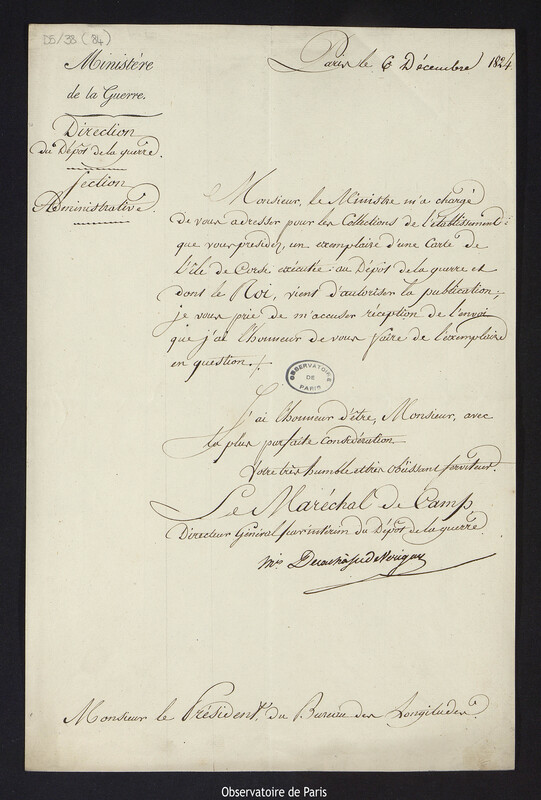 D5/38 (84)
Ministère
de la Guerre.
Direction
du Dépôt de la guerre.
Section
Administrative.
Paris le 6 Décembre 1824
Monsieur, le Ministre m'a chargé
de vous adresser pour les Collections de l'établissement
que vous présidez, un exemplaire d'une Carte de
l'ile de Corse exécutée au Dépôt de la guerre et
dont le Roi, vient d'autoriser la publication;
je vous prie de m'accuser réception de l'envoi
que j'ai l'honneur de vous faire de l'exemplaire
en question./.
OBSERVATOIRE
DE
PARIS
J'ai l'honneur d'être, Monsieur, avec
la plus parfaite considération
Votre très humble et très obéissant serviteur.
Le Maréchal de Camp
Directeur Général par intérim du Dépôt de la guerre.
Mis
Monsieur le Président du Bureau des Longitudes.
Observatoire de Paris